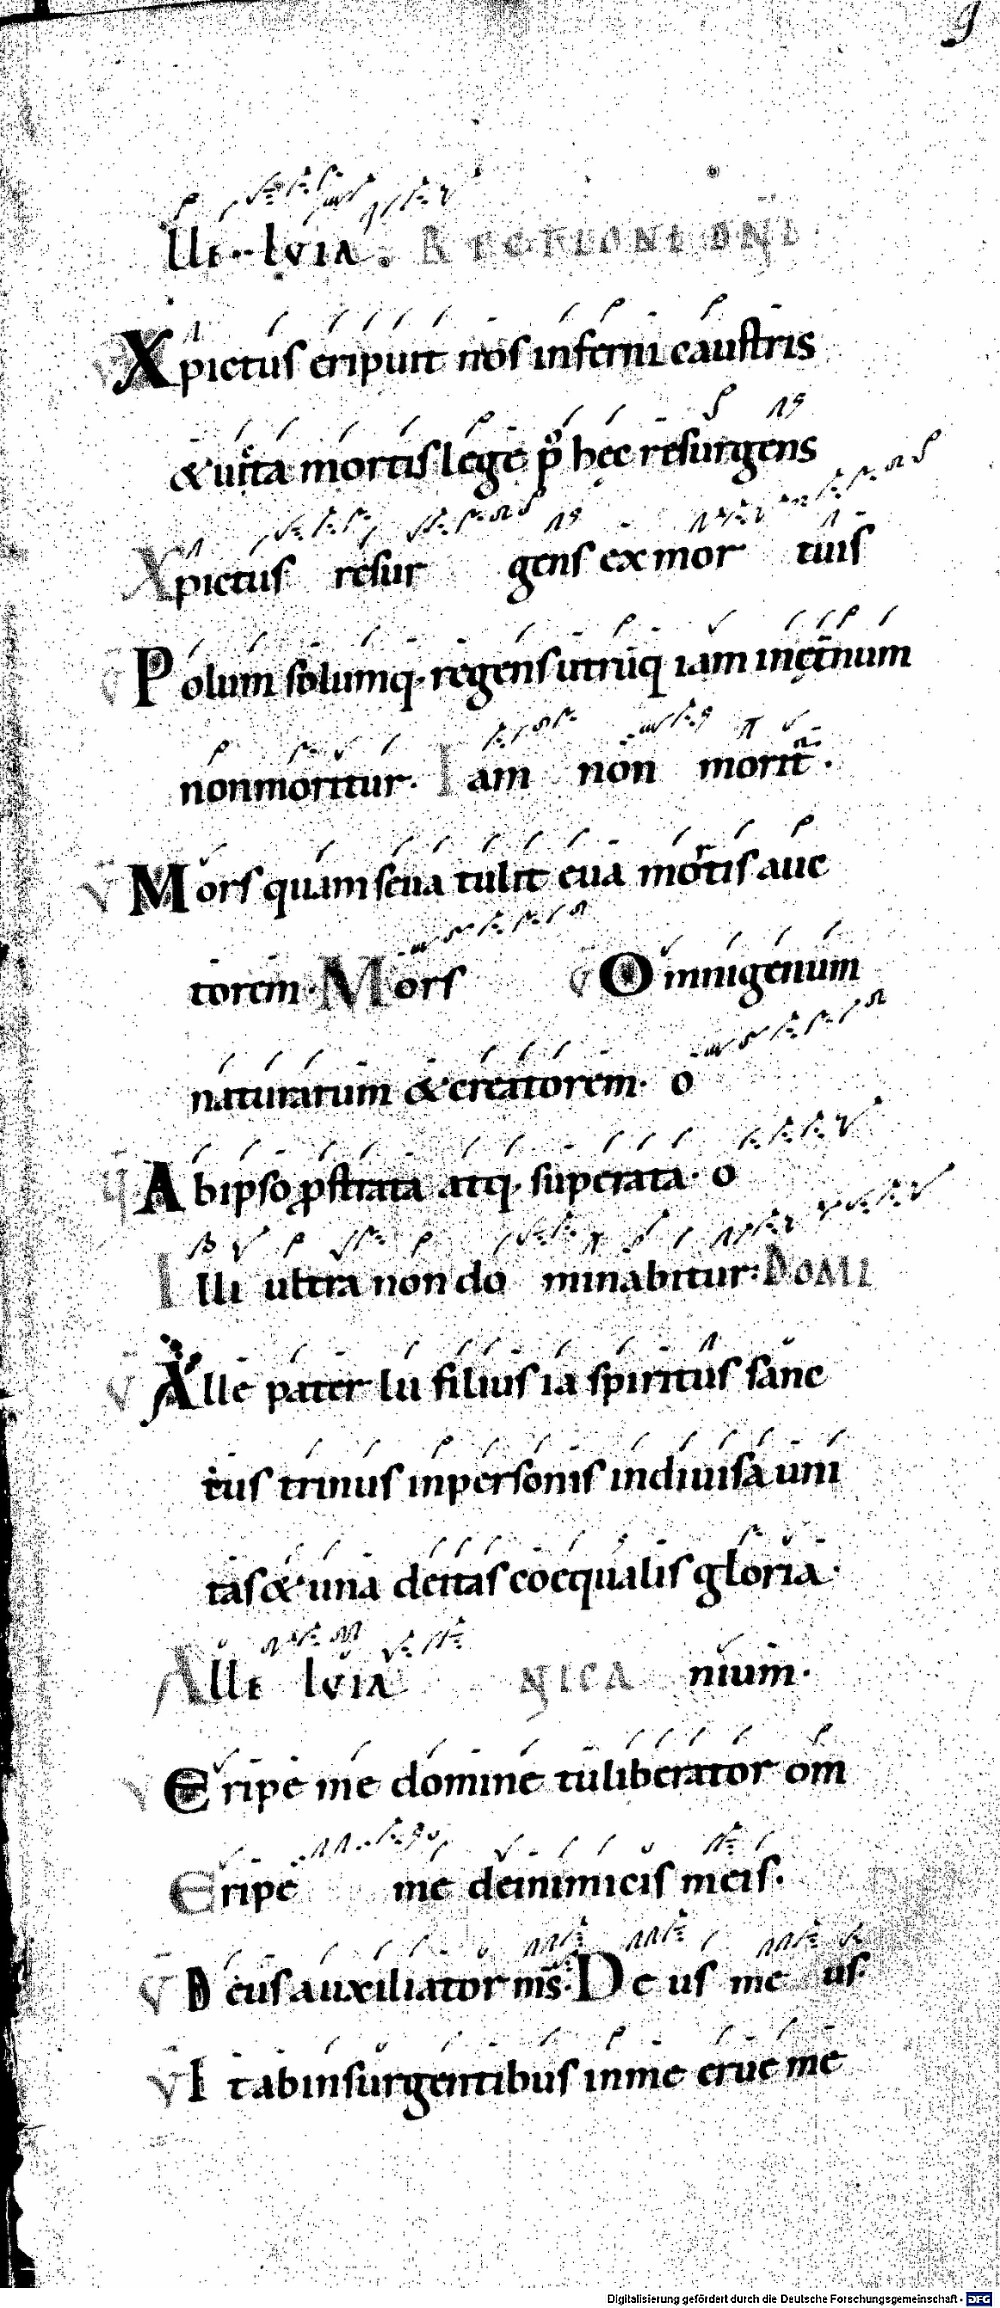 9
lle luia.
Xpictus eripuit nos inferni caustris
& uita mortis lege p hec resurgens
Xpictus resur gens ex mor tuis
V Polum solumq regens utrūq iam in etnum
non moritur. Iam non morit.
V Mors quam seua tulit eua mortis auc
torem. Mors V Omnigenum
naturarum & creatorem. o
V Ab ipso pstrata atq. superata. o
Illi ultra non do minabitur: DOMI
V Alle pater lu filius ia spiritus sanc
tus trinus in personis indiuisa uni
tas & una deitas coequalis gloria.
Alle luia NICA nium.
V Eripe me domine tu liberator om
Eripe me de inimicis meis.
V Deus auxiliator ms. De us me us.
V Ita ab insurgentibus in me erue me
Digitalisierung gefördert durch die Deutsche Forschungsgemeinschaft - DFG